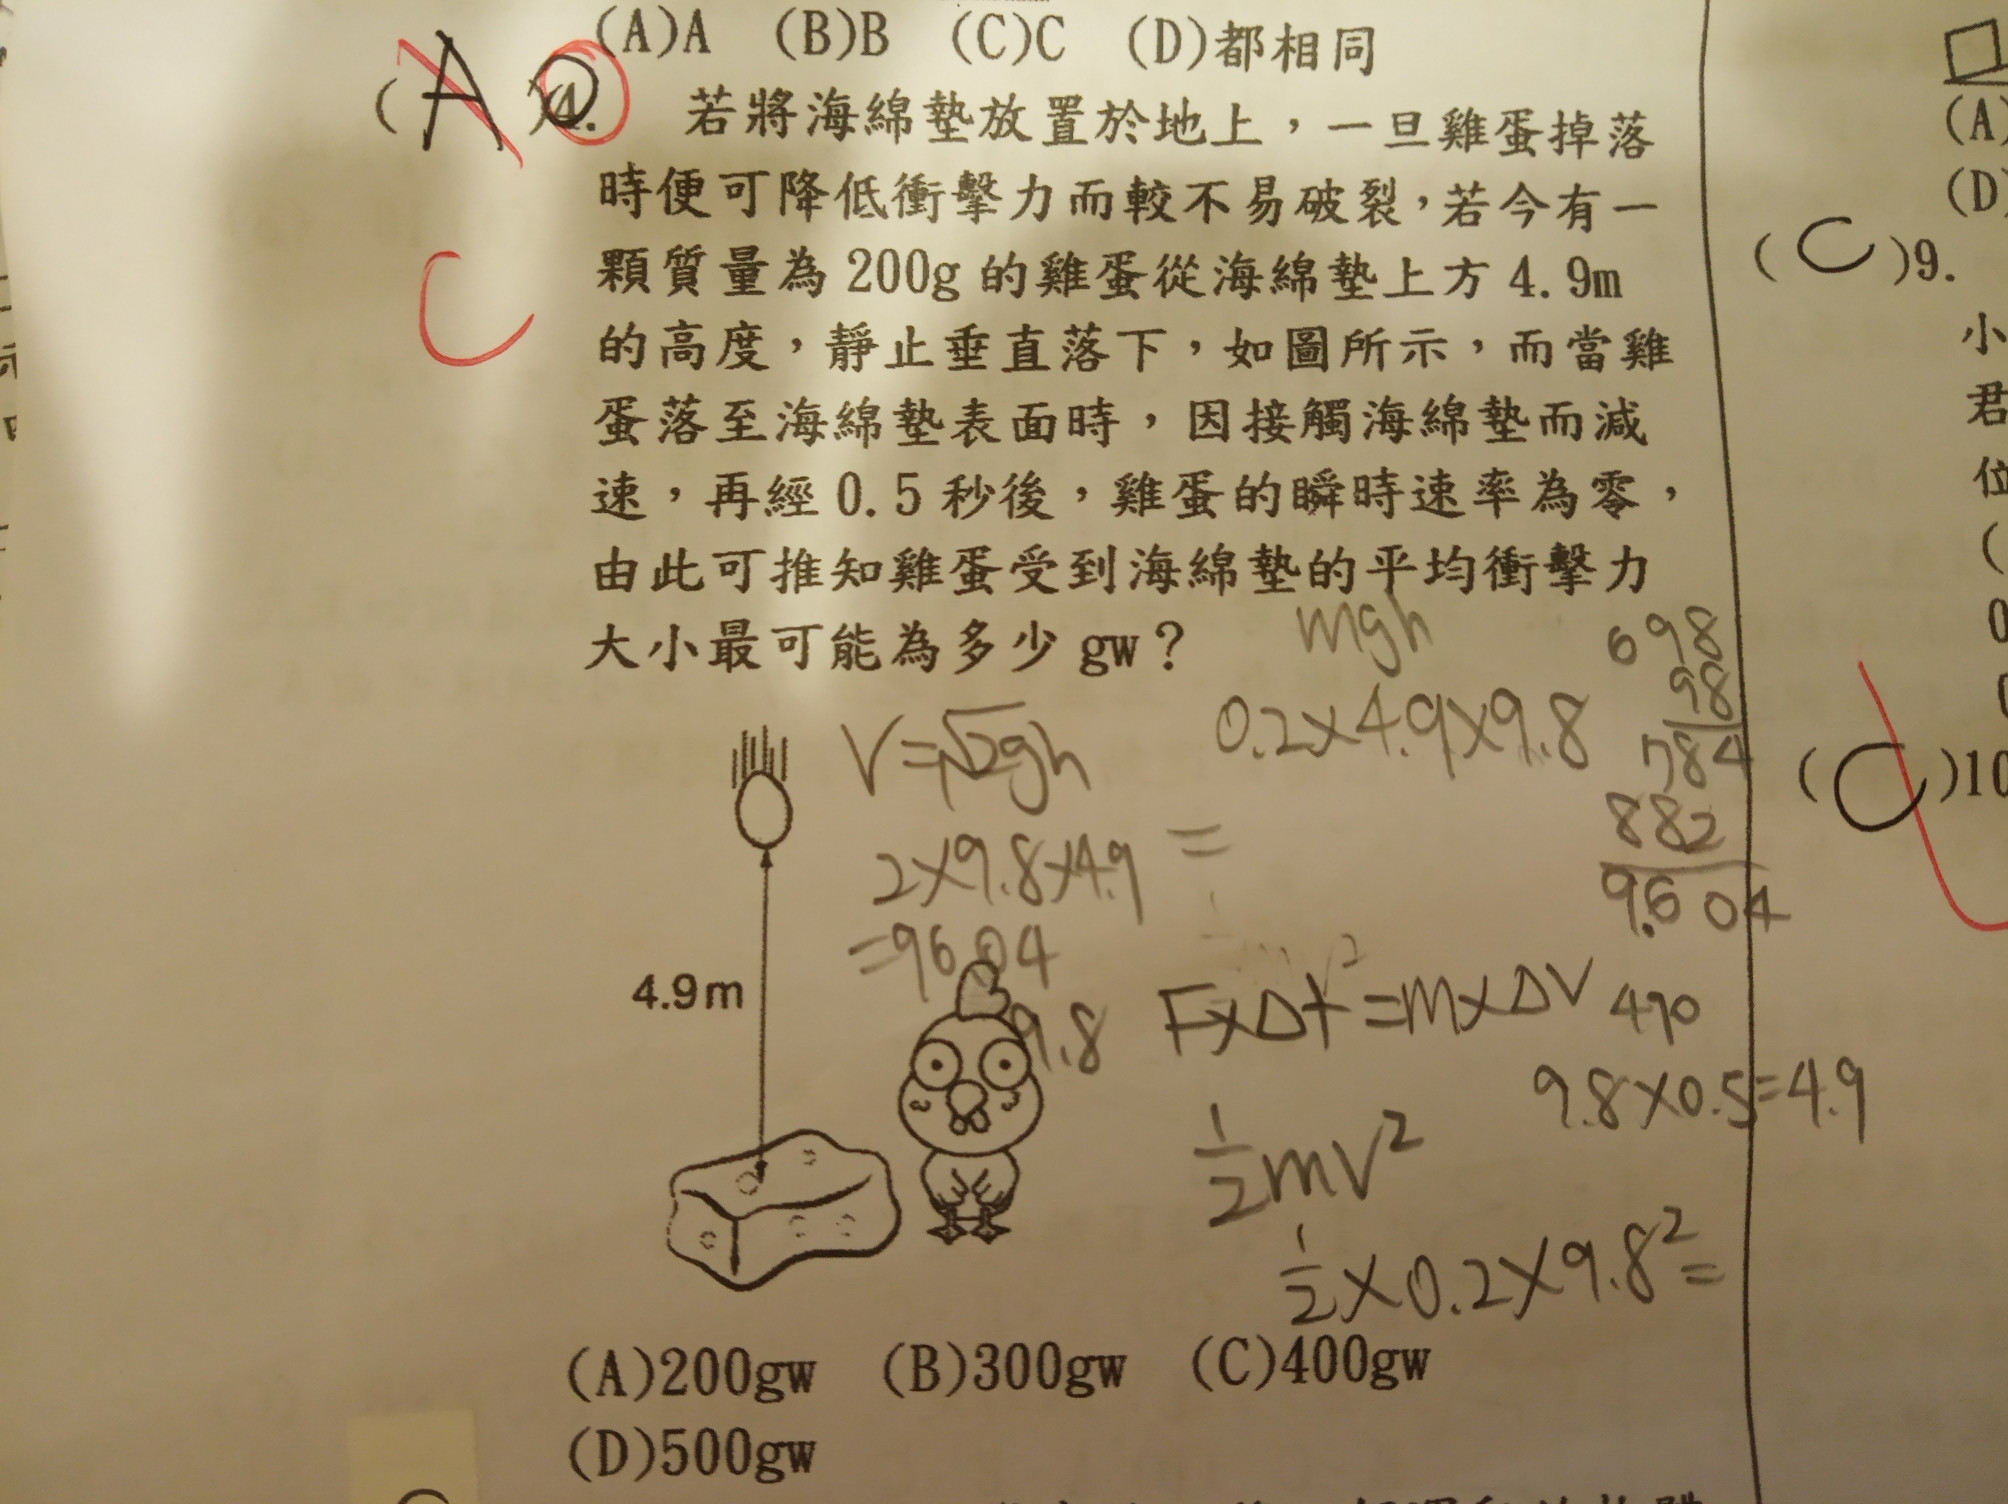 (A)A (B)B (C)C (D)都相同
( A )4. 若將海綿墊放置於地上，一旦雞蛋掉落
時便可降低衝擊力而較不易破裂，若今有一
C
顆質量為 200g 的雞蛋從海綿墊上方 4.9m
的高度，靜止垂直落下，如圖所示，而當雞
蛋落至海綿墊表面時，因接觸海綿墊而減
速，再經 0.5 秒後，雞蛋的瞬時速率為零，
由此可推知雞蛋受到海綿墊的平均衝擊力
大小最可能為多少 gw？
mgh
0.2×4.9×9.8
=
V=√2gh
2×9.8×4.9
=9604
9.8
98
98
784
882
9.604
F×Δt=m×ΔV
490
9.8×0.5=4.9
½mV²
½×0.2×9.8²=
4.9m
(A)200gw (B)300gw (C)400gw
(D)500gw
(A)
(D)
( C )9.
小
君
位
(
0
( C )10